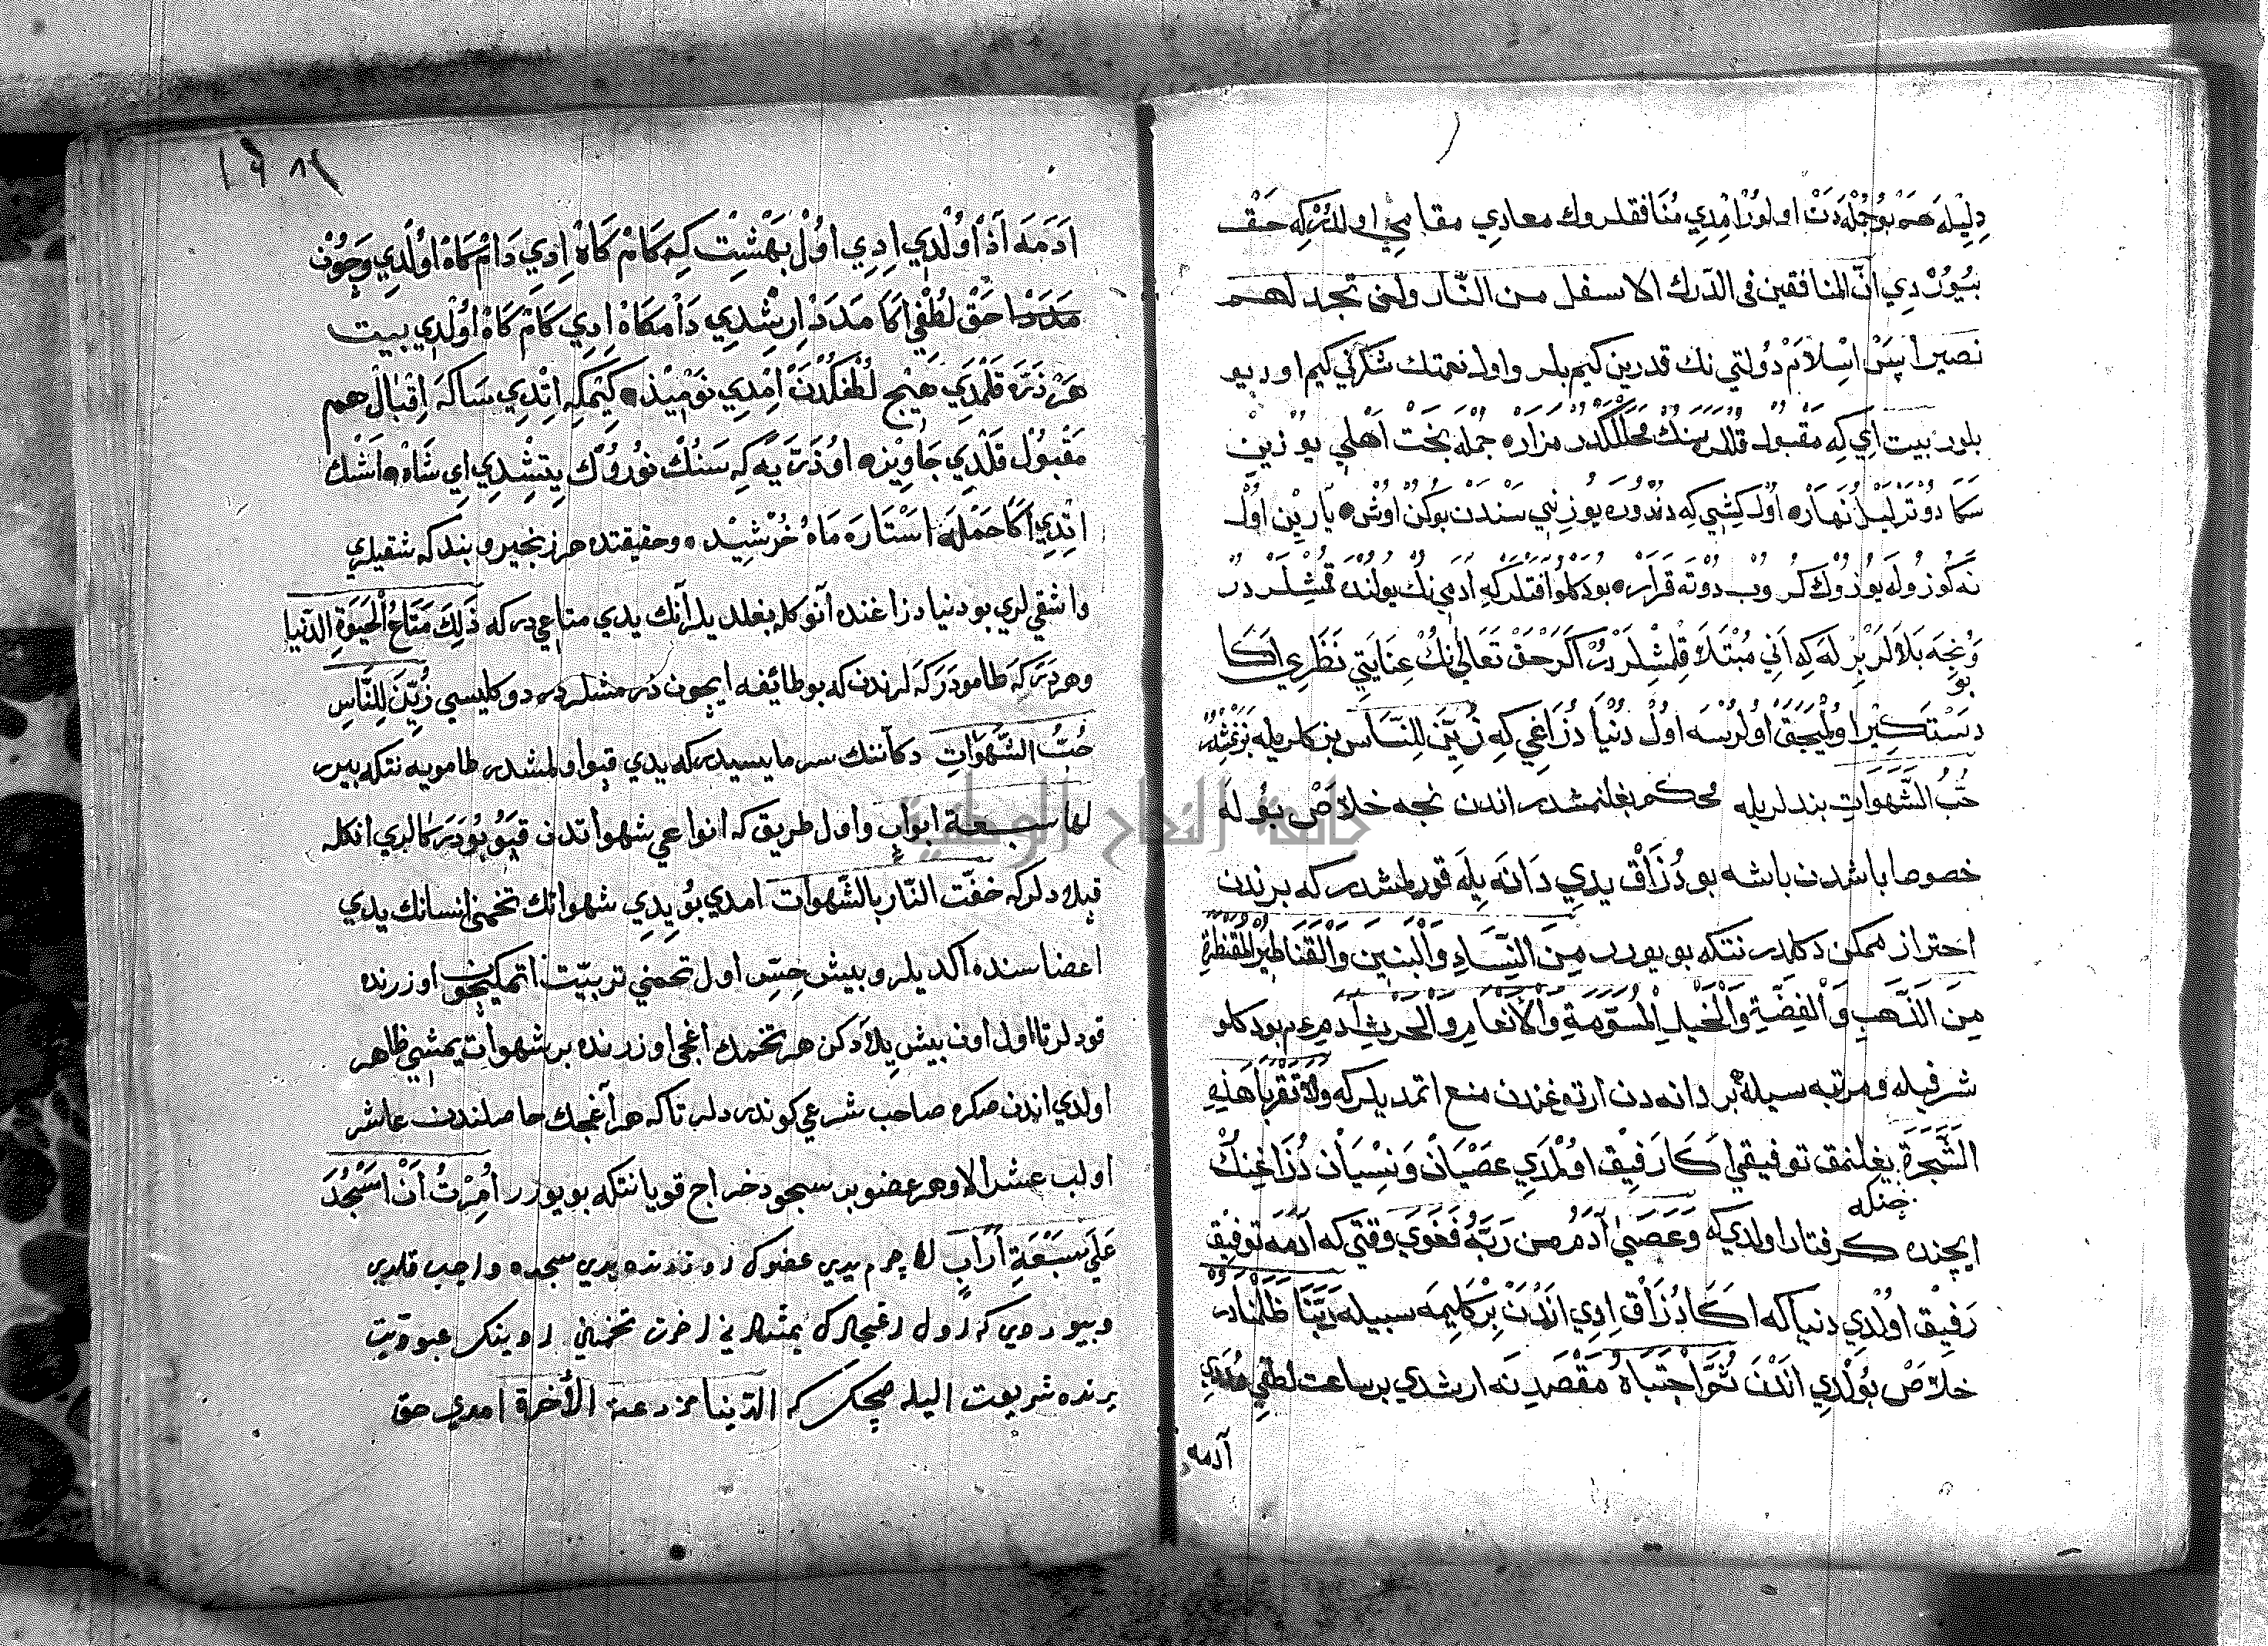 دِلِيلَه هَمْ بُوجُمْلَه دَنْ اولور اِمْدِي مُنَافقلروك معادي مقامي اولدُرْكِه حَقْ
بُيُورْدِي انّ المنافقين فى الدّرك الاسفل من النّار ولن تجد لهم
نصيرا پَسْ اسِلاَمْ دُولتي نك قدرين كيم بلر واول نعمتك شكرني كيم اوريو
بلور بيت اَي كِه مَقْبُول قللر سنك مزاره جُمْله بَخْتْ اَهْلي يوزين
سَكا دُوتَرْ لَيْلُ نَهَاره اُولْ كِشِي كِه دندوره يُوزِني سَنْدَنْ بُوكُنْ اُوشْ يارين اُولْ
نَه كوزوله يُوزُوك كروب دُوتَه قَرَاره بودكلو افتلركِه آدمي نك يُولُنْدَه قمشلردر
وَنِجَه بَلاَلَرْبِرْلَه كِه اَنِي مُبْتَلاَ قِلْمِشْلَرْدُرْ اَكَرْ حَقْ تَعَالىٰ نِكْ عِنَايَتِي نَظَرِي اَكَا
بو
دَسْتكِير اولميجق اولُرْسَه اولْ دُنْيَا دُزَاغِي كِه زُيِّنَ لِلنَّاسِ بزكلريله بزنمشدر
حُبُّ الشَّهَوَاتِ بندلريله محكم بغلنمشدر اندن نجه خلاَصْ بُولَه
خصوصا باشدن باشه بو دُزَاقْ يدي دَانَه يِلَه قورلمشدر كه برندن
احتراز ممكن دكلدر نتكه بويورر مِنَ النِّسَاءِ وَالْبَنِينَ وَالْقَنَاطِيرِ الْمُقَنْطَرَةِ
مِنَ الذَّهَبِ وَالْفِضَّةِ وَالْخَيْلِ الْمُسَوَّمَةِ وَالْاَنْعَامِ وَالْحَرْثِ آدم ع م بودكلو
شرفيله ومرتبه سيله بر دانه دن ارتوغندن منع اتمديلركه وَلاَ تَقْرَبَا هَذِهِ
الشَّجَرَةَ يغلنمق توفيقي اَكَا رَفيق اولمدي عصْيَانْ وَنِسْيَانْ دُزَاغِنِكْ
چنكه
ايچنده كرفتار اولدي كه وَعَصَىٰ آدَمُ رَبَّهُ فَغَوَىٰ وقتي كه آدمَه تَوفيق
رَفِيق اوُلْدِي دنيا كه اَكَا دُزَاقْ اِدِي اَنْدَنْ بِرْ كلِيمَه سيله رَبَّنَا ظَلَمْنَادن
خلاَصْ بُولْدِي اندن ثُمَّ اجْتَبَاهُ مَقْصَدِنَه ارشدي بر ساعت لطفي
آدمه
اَدَمَه اَدْ اُولْدي اِدِي اوُلْ بَهشت كِه كَامْ كَاهْ اِدِي دَامْ كَاهْ اوُلْدي وَچُونْ
مَدَدْ حَقْ لُطْفِي اَكَا مَدَدْ اِرِشْدِي دَامْكَاهْ اِدِي كَامْ كَاهْ اُوْلْدِي بيت
هَرْ ذَرَّه قَلْمَدِي هِيْج لُطفكدَنْ اِمْدِي نَوْمِيْذْ كِيْمَكِه اِتْدِي سَاكَه اِقْبَالْ هم
مَقْبُولْ قَلْدِي جَاوِيْرْه اوُ ذَرَّ يَه كِه سَنُكْ نُورُوْكْ يِتِشْدِي اي شَاهْ اَشْكْ
اتدِي اَكَا حَمْلَه اسْتَاره مَاهْ خُرْشِيْد وحقيقتده هر زنجير وبند كه شقيلري
واشقي لري بو دنيا دزاغنده آنوكله بغلديلر آنك يدي متاعي دركه ذَلِكَ مَتَاعُ الْحَيَوةِ الدُّنْيَا
وهر دَرَكَه طامو دَرَكَه لرندن كه بو طائفه ايچون دزمشلردر دوكليسي زُيِّنَ لِلنَّاسِ
حُبُّ الشَّهَوَاتِ دكاننك سرمايسيدركه يدي قپو اولمشدر طامويه نتكه بيرر
لها سبعة ابواب واول طريق كه انواعي شهواتدن قپو بودركالري انكله
قپلادلركه حفّت النّار بالشّهوات امدي بُو يِدِي شهواتك تخمني انسانك يدي
اعضا سنده اكديلر وبيش حِسِّ اول تخمني تربيّت اتمكيچون اوزرنده
قودلر تا اول اون بيش يلادكن هر تخمك اغجي اوزرنده بر شهوات يمشي ظاهر
اولدي اندن صكره صاحب شرعي كوندردلر تاكه هر آغجك حاصلندن عاشر
اولب عشر الا وهر عضو بر سجود خراج قويا نتكه بويورر اُمِرْتُ اَنْ اَسْجُدَ
عَلَي سَبْعَةِ اَرَابٍ لا جرم يدي عضوك اوزرنده يدي سجده واجب قلدي
وبيوردي كه اول اغجلرك يمشلرني اخرت تخمني اوينك عبوديّت
يرنده شريعت اليله صچك كه الدّنيا مزرعة الأخرة امدي حق